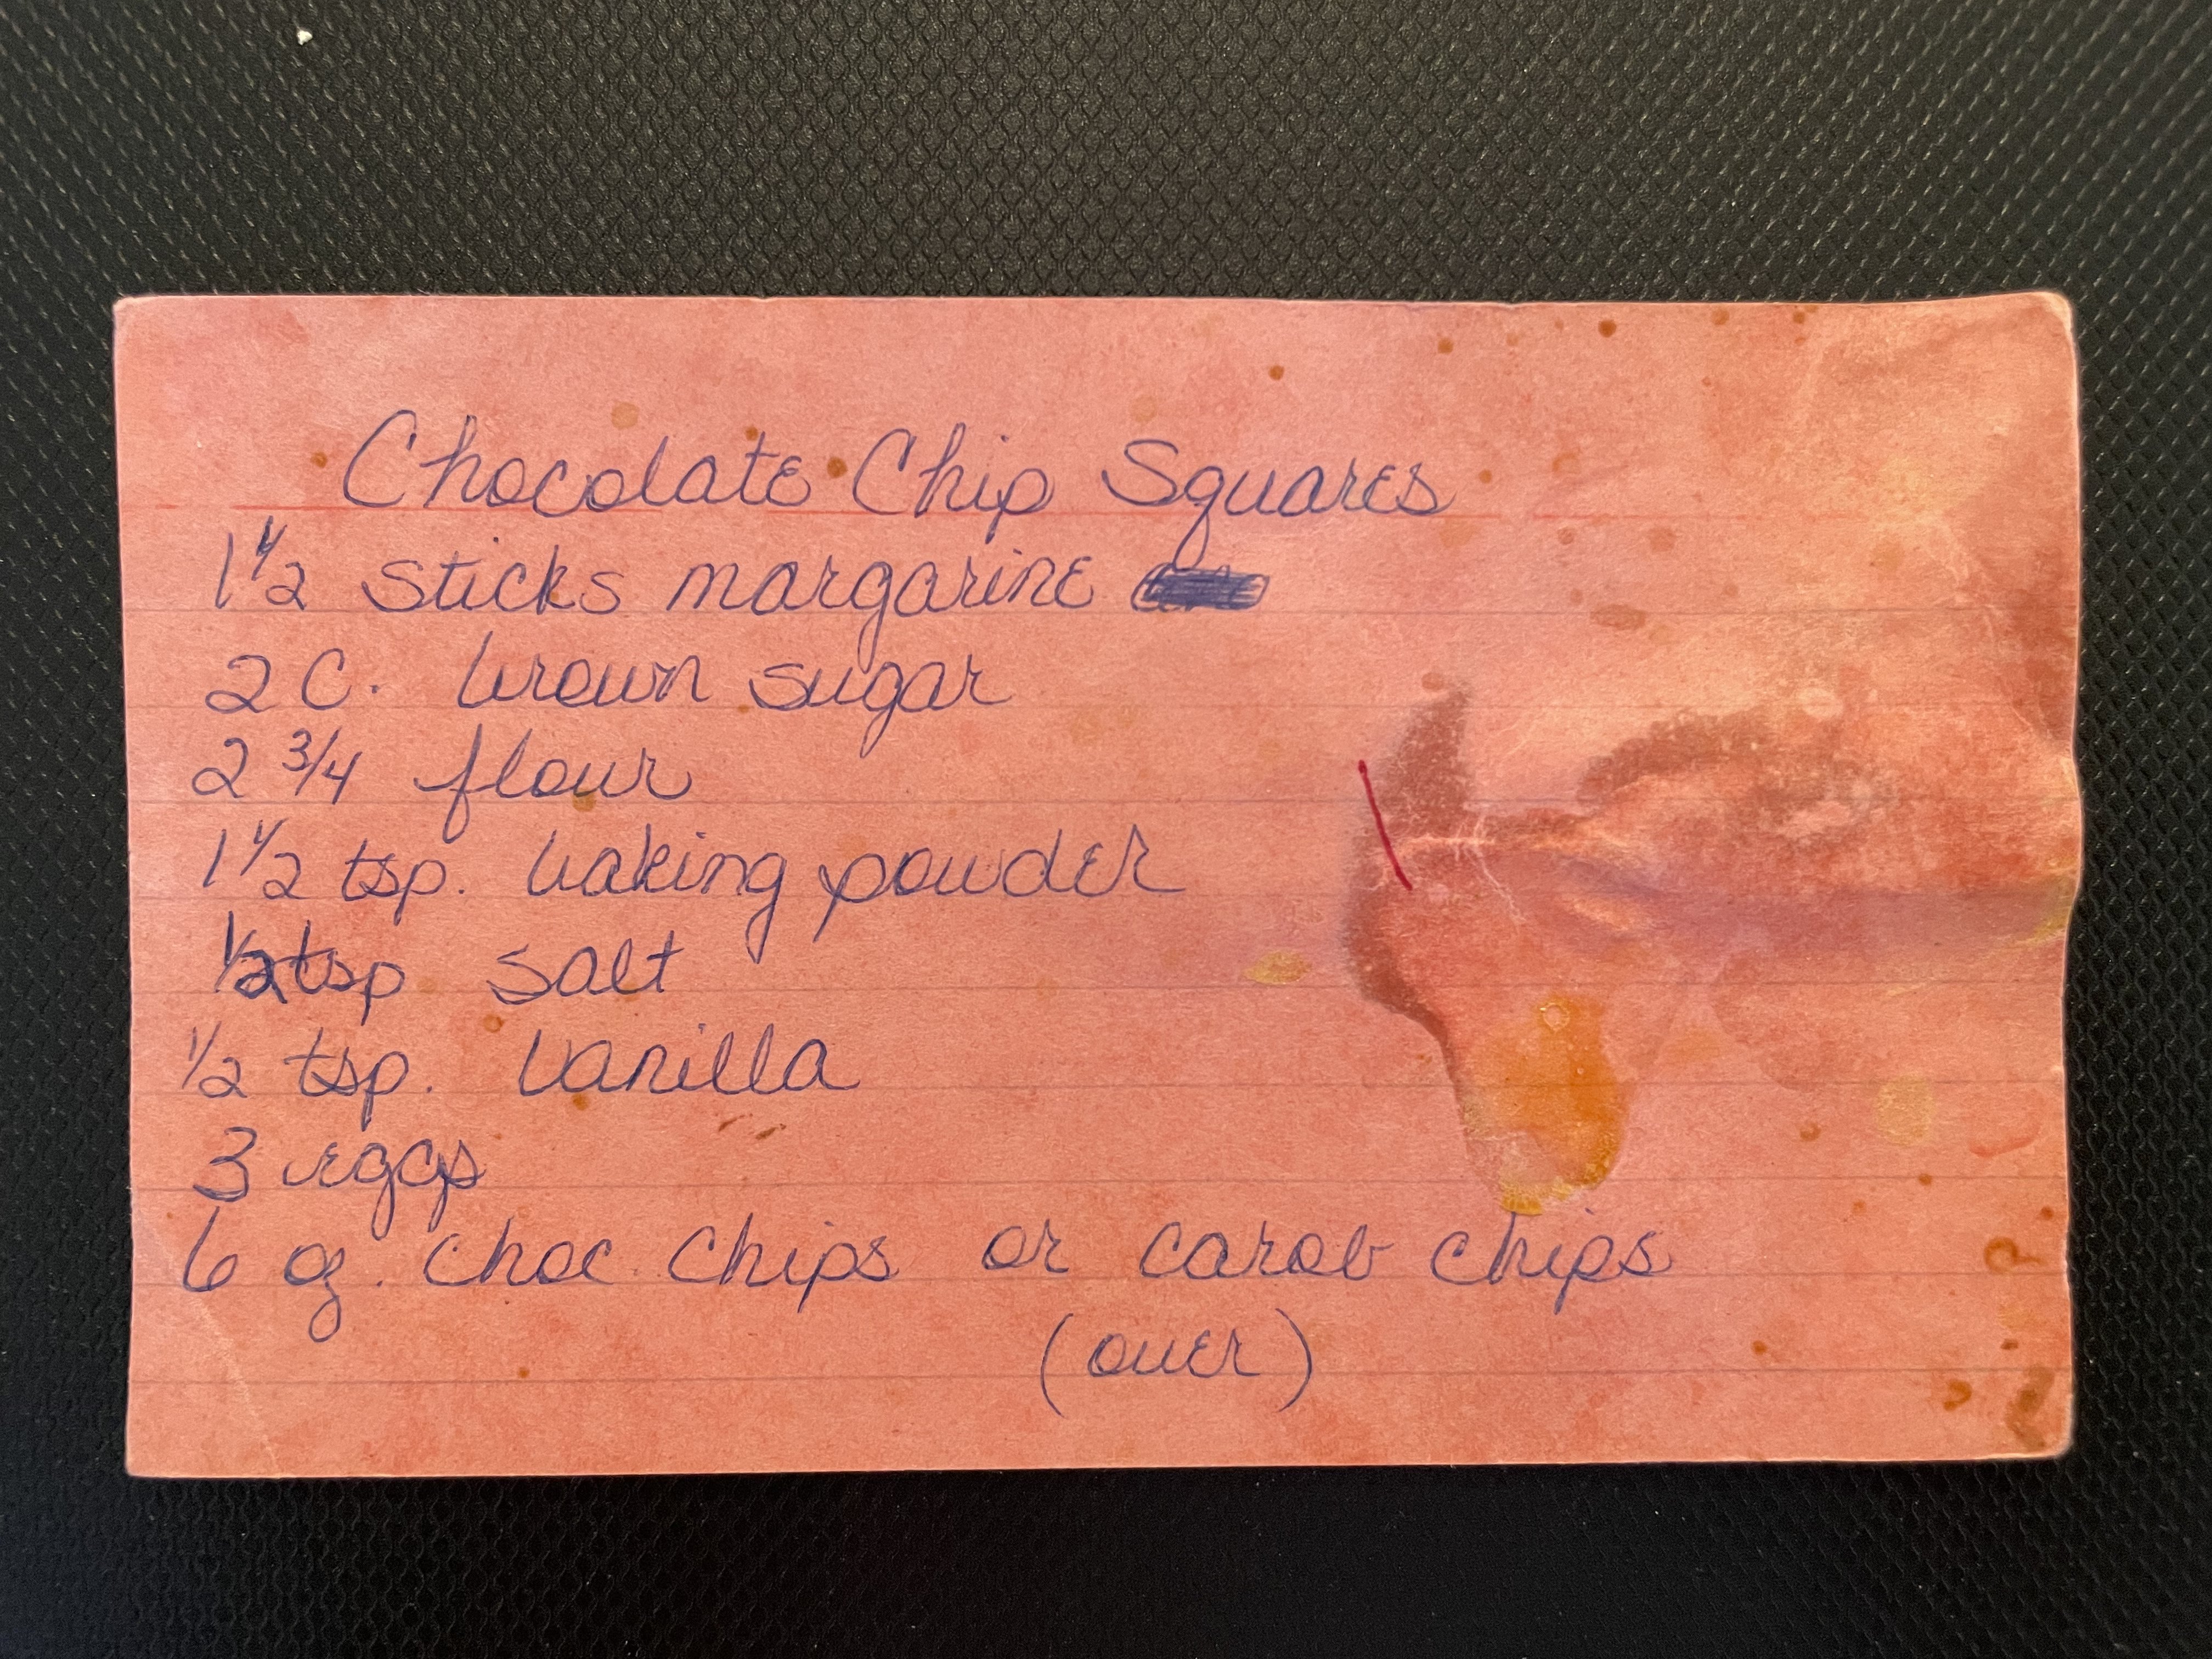 Chocolate Chip Squares
1 1/2 sticks margarine
2 C. brown sugar
2 3/4 flour
1 1/2 tsp. baking powder
1/2 tsp salt
1/2 tsp. vanilla
3 eggs
6 oz. choc chips or carob chips
(over)